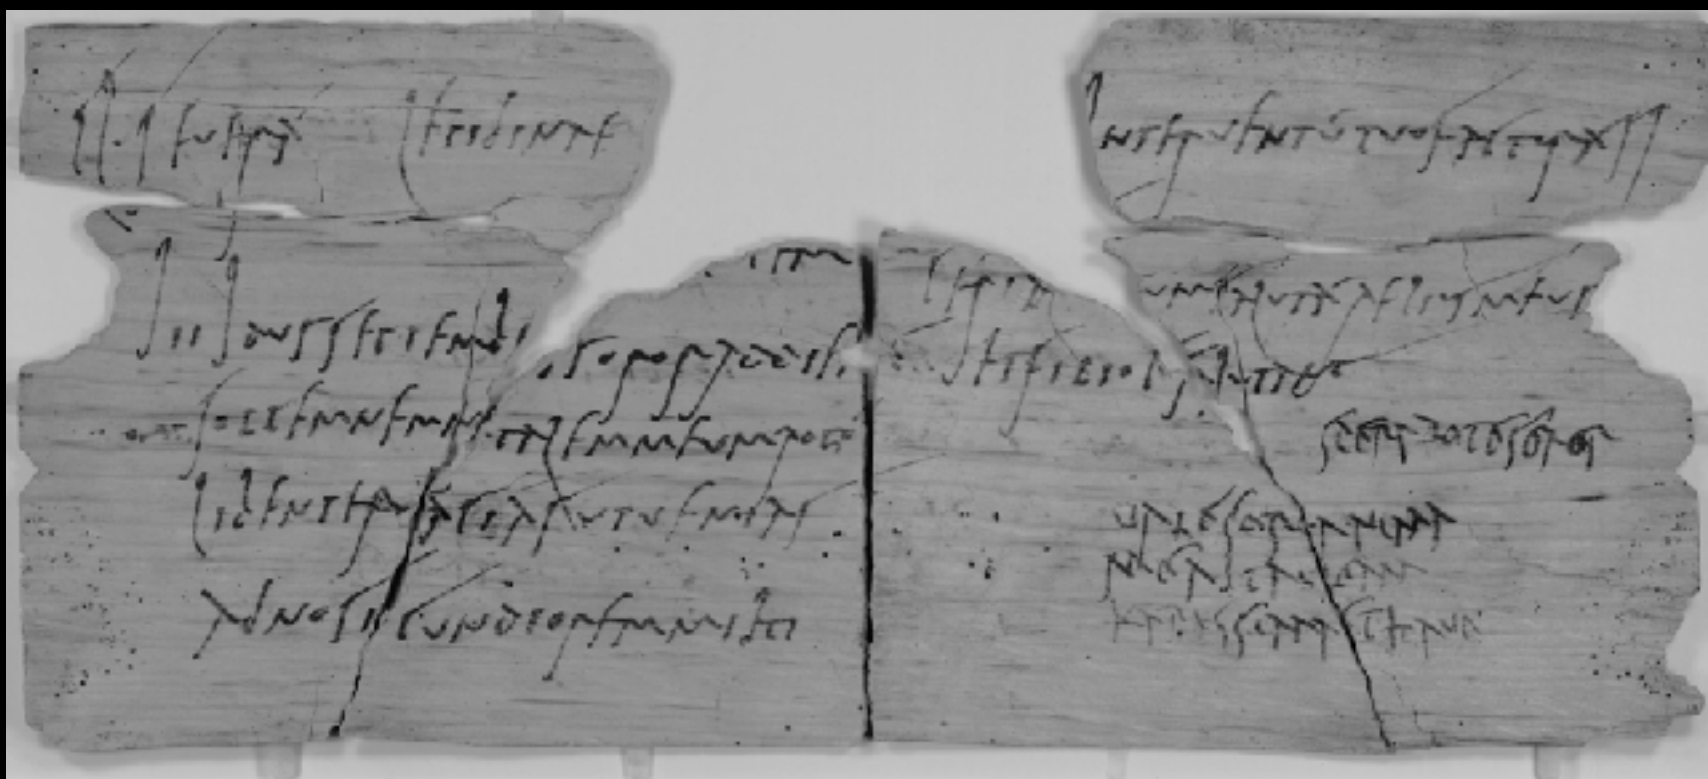 Cl Severá Lepidinae
iii Idus Septembres soror ad diem
sollemnem natalem meum rogo
libenter facias ut venias
ad nos iucundiorem mihi
interventú tuo factura si
Cerialem tuum salutá Aelius meus
et filiolus salutant
sperabo te soror
vale soror anima
mea ita valeam
karissima et have